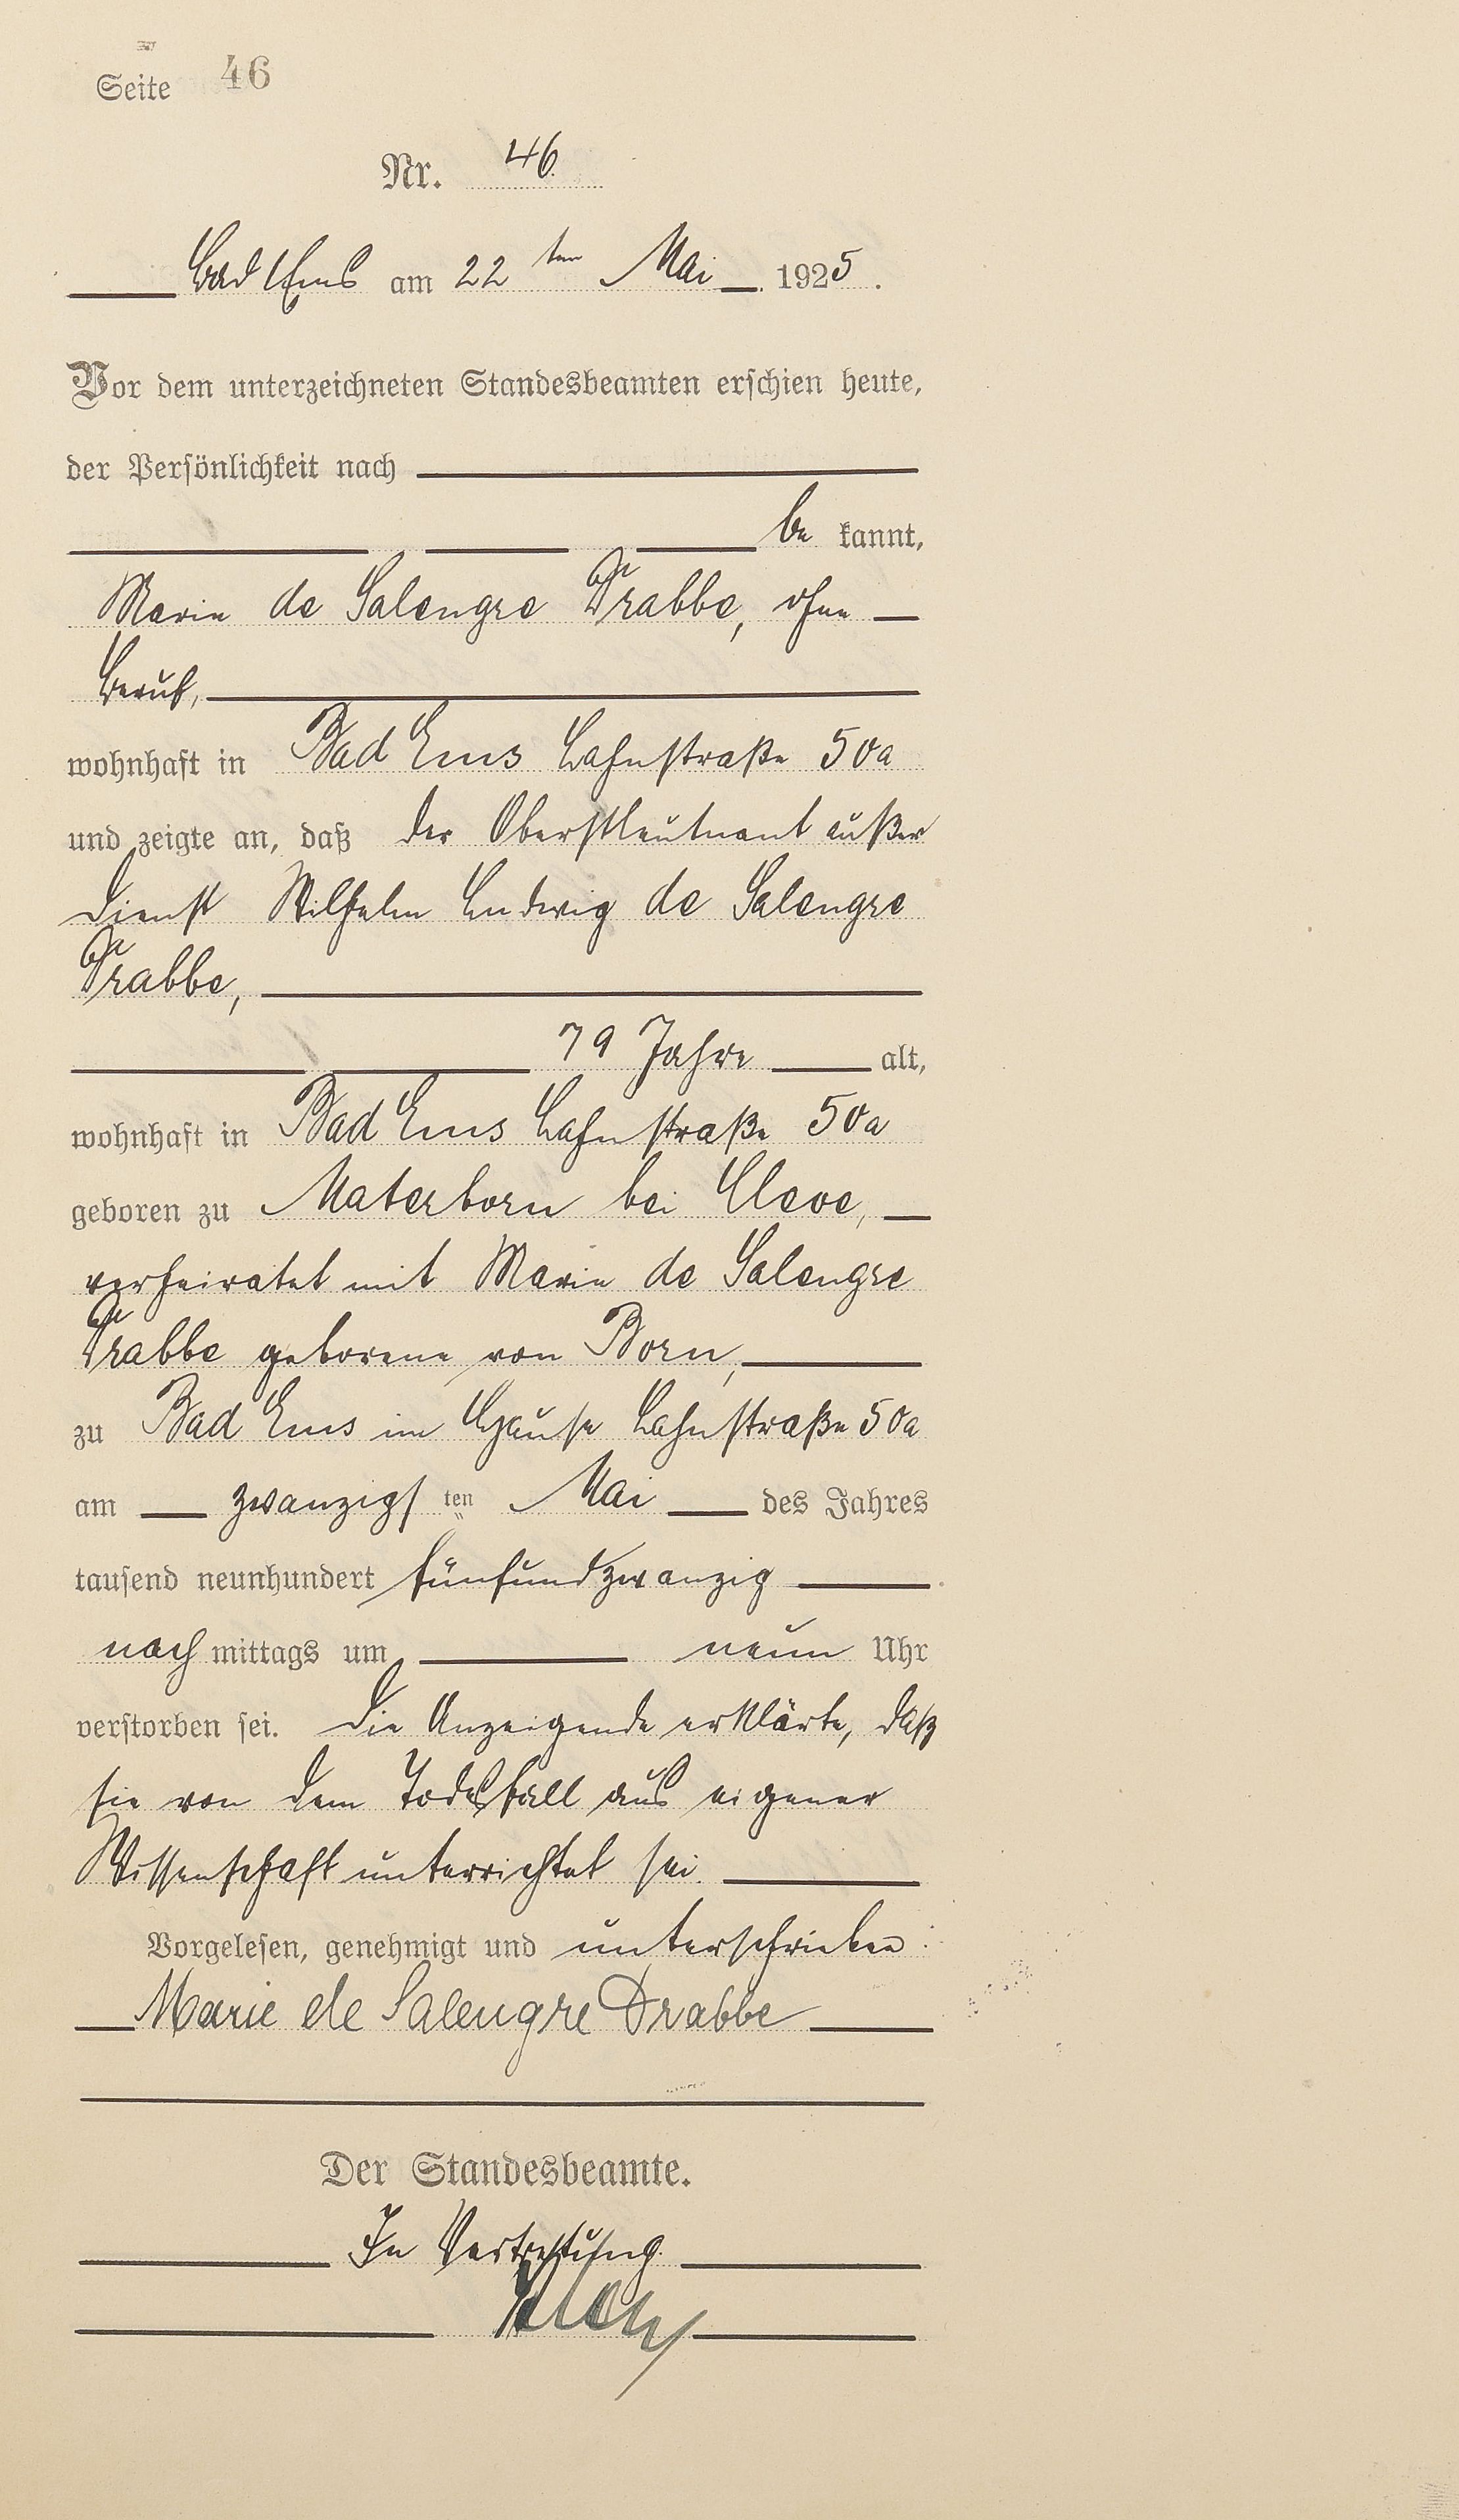 Seite 46
Nr. 46.
Bad Ems am 22 ten Mai 1925.
Vor dem unterzeichneten Standesbeamten erschien heute,
der Persönlichkeit nach
be kannt,
Marie de Salengre Drabbe, ohne
Beruf,
wohnhaft in Bad Ems Lahnstraße 50a
und zeigte an, daß der Oberstleutnant außer
Dienst Wilhelm Ludwig de Salengre
Drabbe,
79 Jahre alt,
wohnhaft in Bad Ems Lahnstraße 50a
geboren zu Materborn bei Cleve,
verheiratet mit Marie de Salengre
Drabbe geborene von Born,
zu Bad Ems im Hause Lahnstraße 50a
am zwanzigs ten Mai des Jahres
tausend neunhundert fünfundzwanzig
nach mittags um neun Uhr
verstorben sei. Die Anzeigende erklärte, daß
sie von dem Todesfall aus eigener
Wissenschaft unterrichtet sei.
Vorgelesen, genehmigt und unterschrieben:
Marie de Salengre Drabbe
Der Standesbeamte.
In Vertretung.